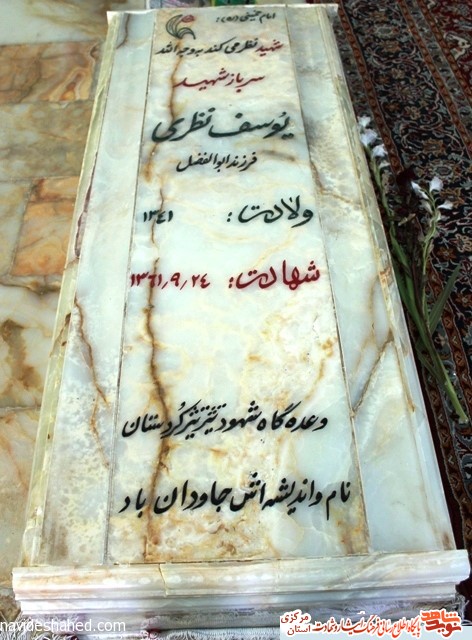 امام خمینی (ره):
شهید نظر می کند به وجه الله
سرباز شهید
یوسف نظری
فرزند ابوالفضل
ولادت: ۱۳۴۱
شهادت: ۱۳۶۱/۹/۲۴
وعده گاه شهود تیژتیژ کردستان
نام و اندیشه اش جاودان باد
navideshahed.com
پایگاه اطلاع رسانی فرهنگ ایثار و شهادت
استان مرکزی
نوید شاهد